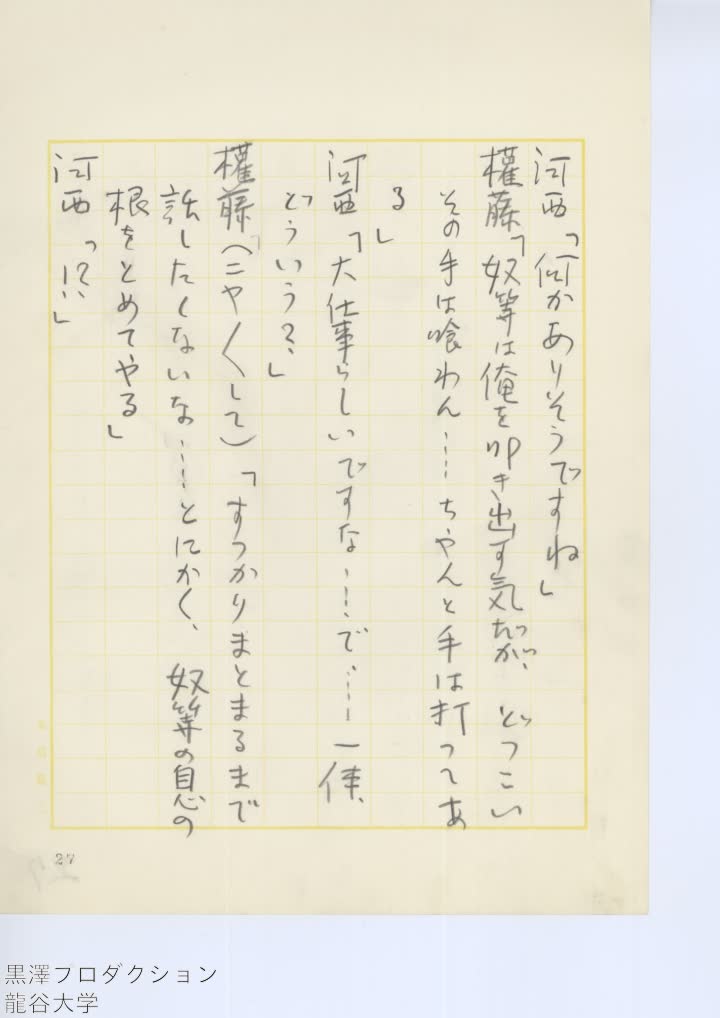 河西「何かありそうですね」
權藤「奴等は俺を叩き出す気だが、どつこい
その手は喰わん……ちやんと手は打つてあ
る」
河西「大仕事らしいですな……で……一体、
どういう?」
權藤(ニヤ〳〵して)「すつかりまとまるまで
話したくないな……とにかく、奴等の息の
根をとめてやる」
河西「!?」
27
黒澤プロダクション
龍谷大学